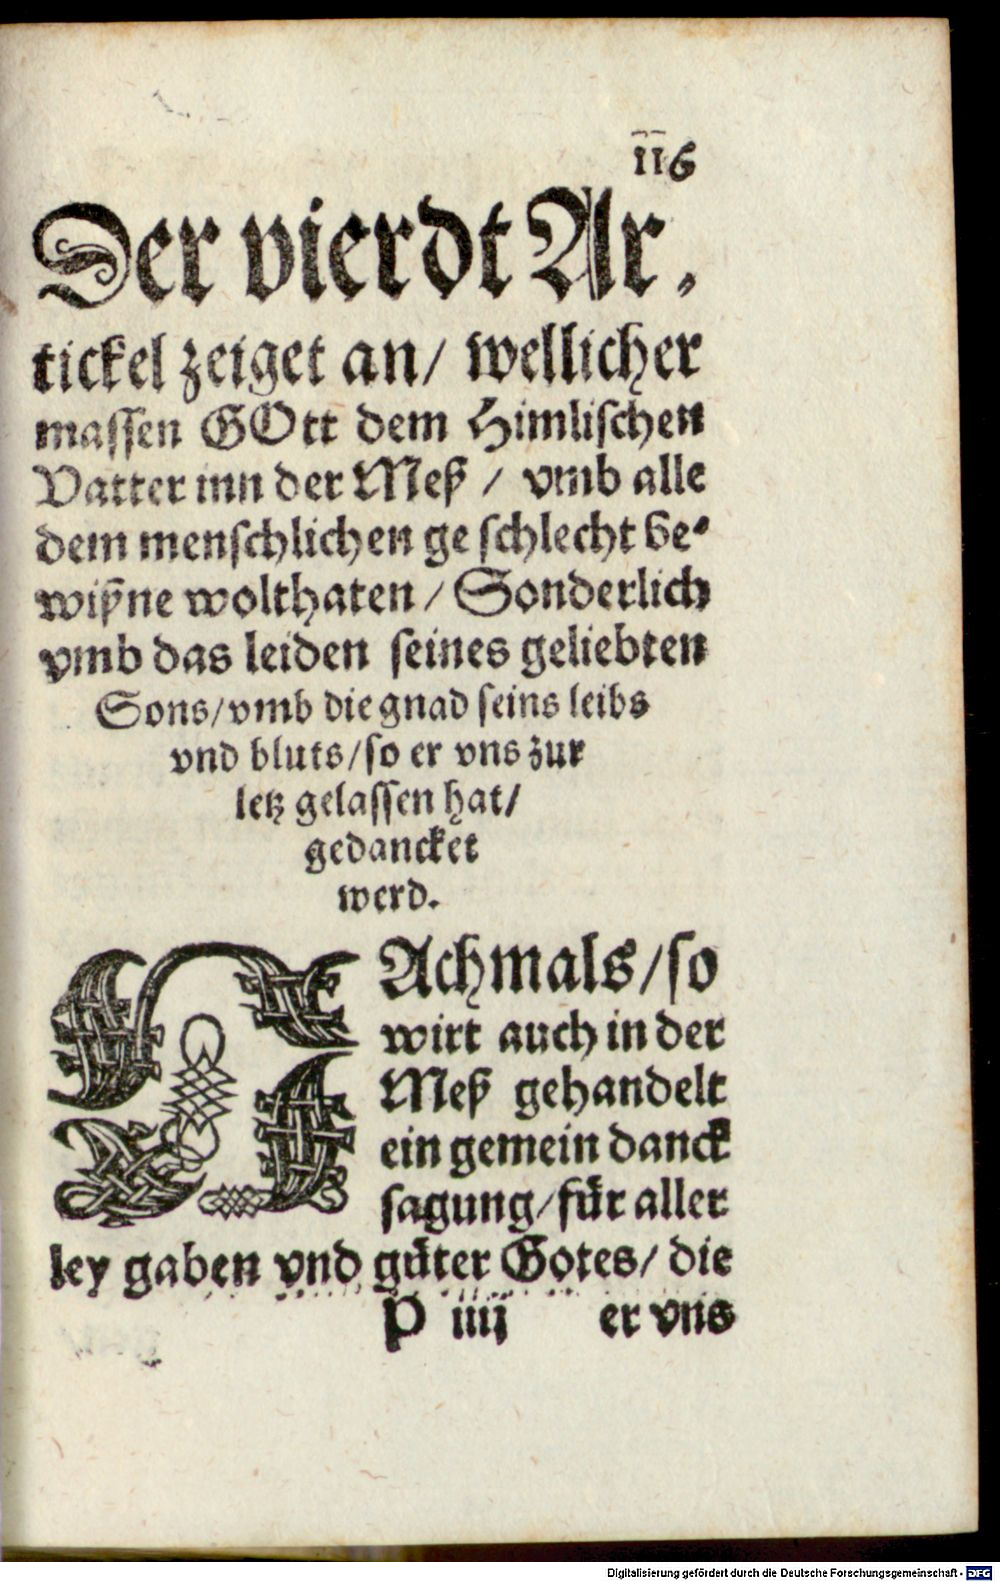 116
Der vierdt Ar⸗
tickel zeiget an/ wellicher
massen GOtt dem Himlischen
Vatter inn der Meß / vmb alle
dem menschlichen geschlecht be⸗
wißne wolthaten / Sonderlich
vmb das leiden seines geliebten
Sons/vmb die gnad seins leibs
vnd bluts/so er vns zur
letz gelassen hat/
gedancket
werd.
NAchmals/so
wirt auch in der
Meß gehandelt
ein gemein danck
sagung/für aller
ley gaben vnd güter Gotes/ die
P iiij er vns
Digitalisierung gefördert durch die Deutsche Forschungsgemeinschaft - DFG